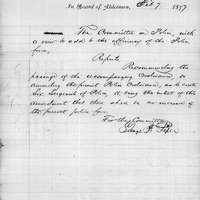 In Board of Aldermen, Feb 7 1877
The Committee on Police, with
a view to add to the efficiency of the Police
force,
Report
Recommending the
passage of the accompanying Ordinance, or
amending the present Police Ordinance, as to
Sergeants of Police, it being the intent of the
Amendment that there shall be no increase of
the present police force.
For the Committee